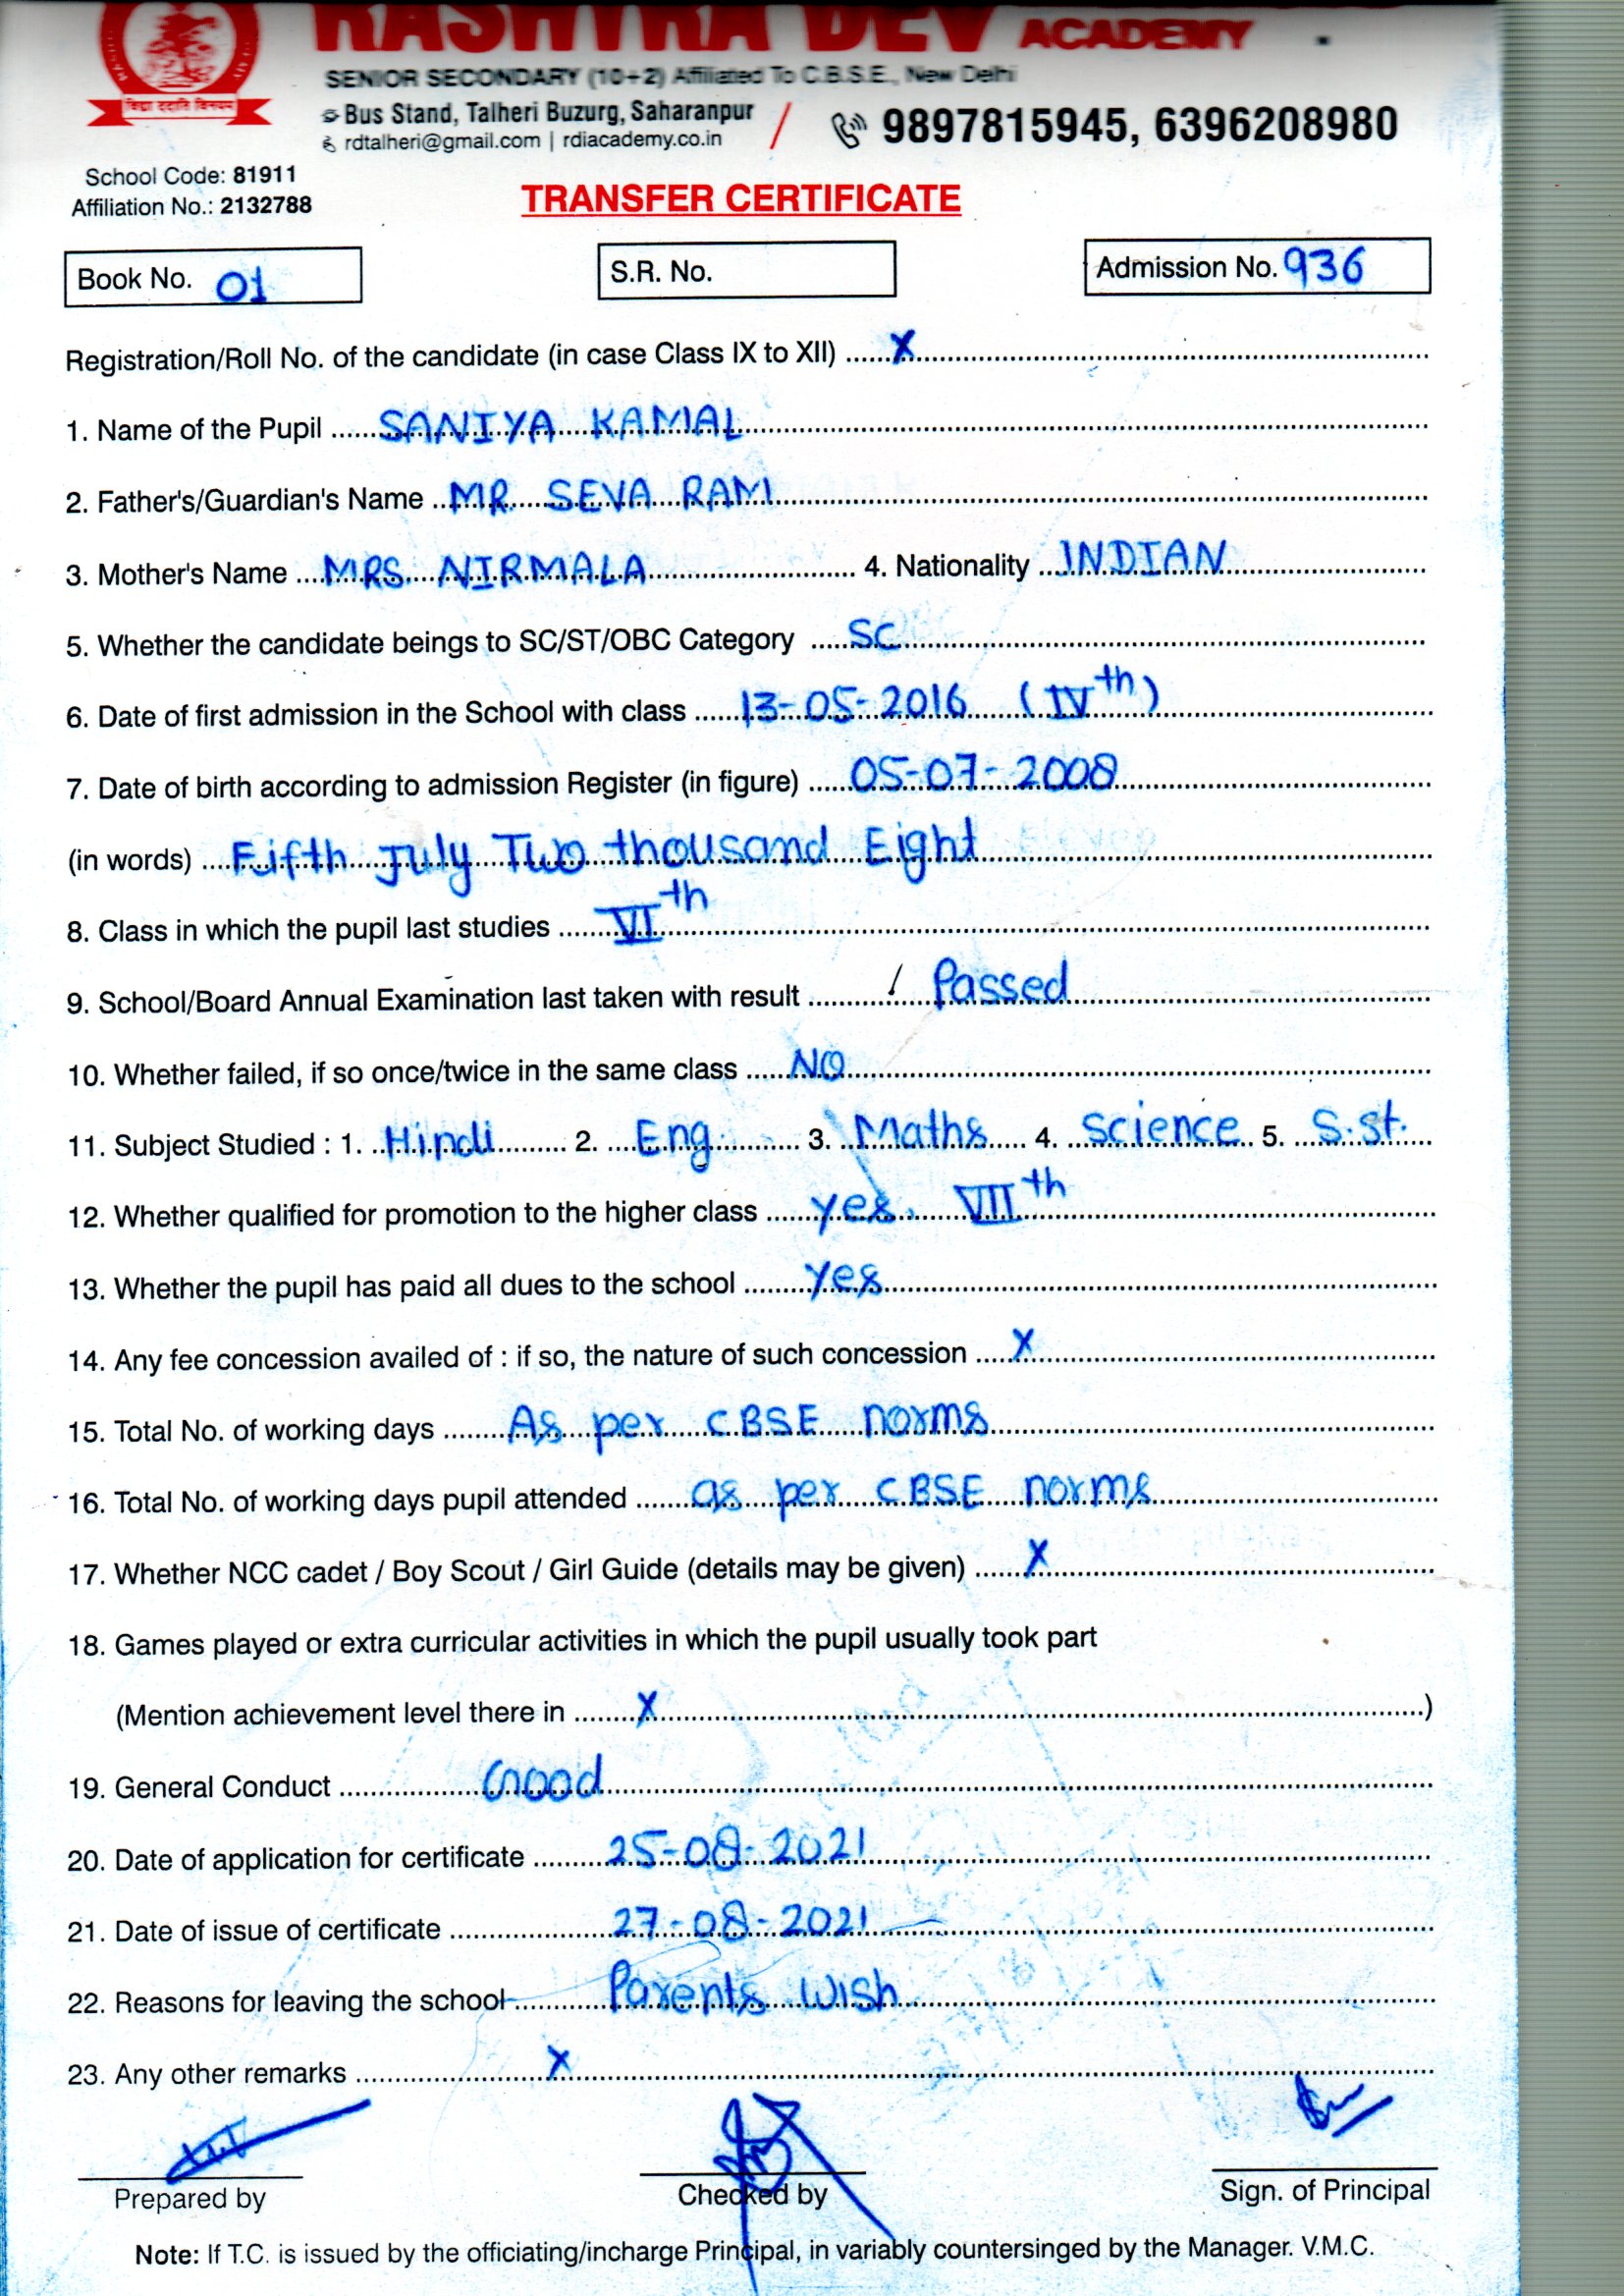 RASHTRA DEV ACADEMY
SENIOR SECONDARY (10+2) Affiliated To C.B.S.E., New Delhi
Bus Stand, Talheri Buzurg, Saharanpur
rdtalheri@gmail.com | rdiacademy.co.in
9897815945, 6396208980
विद्या ददाति विनयम्
School Code: 81911
Affiliation No.: 2132788
TRANSFER CERTIFICATE
Book No. 01 S.R. No. Admission No. 936
Registration/Roll No. of the candidate (in case Class IX to XII) ..... X
1. Name of the Pupil ..... SANIYA KAMAL
2. Father's/Guardian's Name .. MR. SEVA RAM
3. Mother's Name .... MRS. NIRMALA ..... 4. Nationality ... INDIAN
5. Whether the candidate beings to SC/ST/OBC Category ..... SC
6. Date of first admission in the School with class ...... 13-05-2016 (IVth)
7. Date of birth according to admission Register (in figure) ...... 05-07-2008
(in words) .... Fifth July Two thousand Eight
8. Class in which the pupil last studies ...... VIth
9. School/Board Annual Examination last taken with result ...... / Passed
10. Whether failed, if so once/twice in the same class ...... NO
11. Subject Studied : 1. Hindi ..... 2. Eng. ..... 3. Maths .... 4. Science 5. S.st.
12. Whether qualified for promotion to the higher class ...... yes. VIIth
13. Whether the pupil has paid all dues to the school ...... yes
14. Any fee concession availed of : if so, the nature of such concession ..... X
15. Total No. of working days ...... As per CBSE norms
16. Total No. of working days pupil attended ...... as per CBSE norms
17. Whether NCC cadet / Boy Scout / Girl Guide (details may be given) ..... X
18. Games played or extra curricular activities in which the pupil usually took part
(Mention achievement level there in ...... X ......)
19. General Conduct ...... Good
20. Date of application for certificate ...... 25-08-2021
21. Date of issue of certificate ...... 27-08-2021
22. Reasons for leaving the school ...... Parents wish
23. Any other remarks ...... X
Prepared by Checked by Sign. of Principal
Note: If T.C. is issued by the officiating/incharge Principal, in variably countersinged by the Manager. V.M.C.